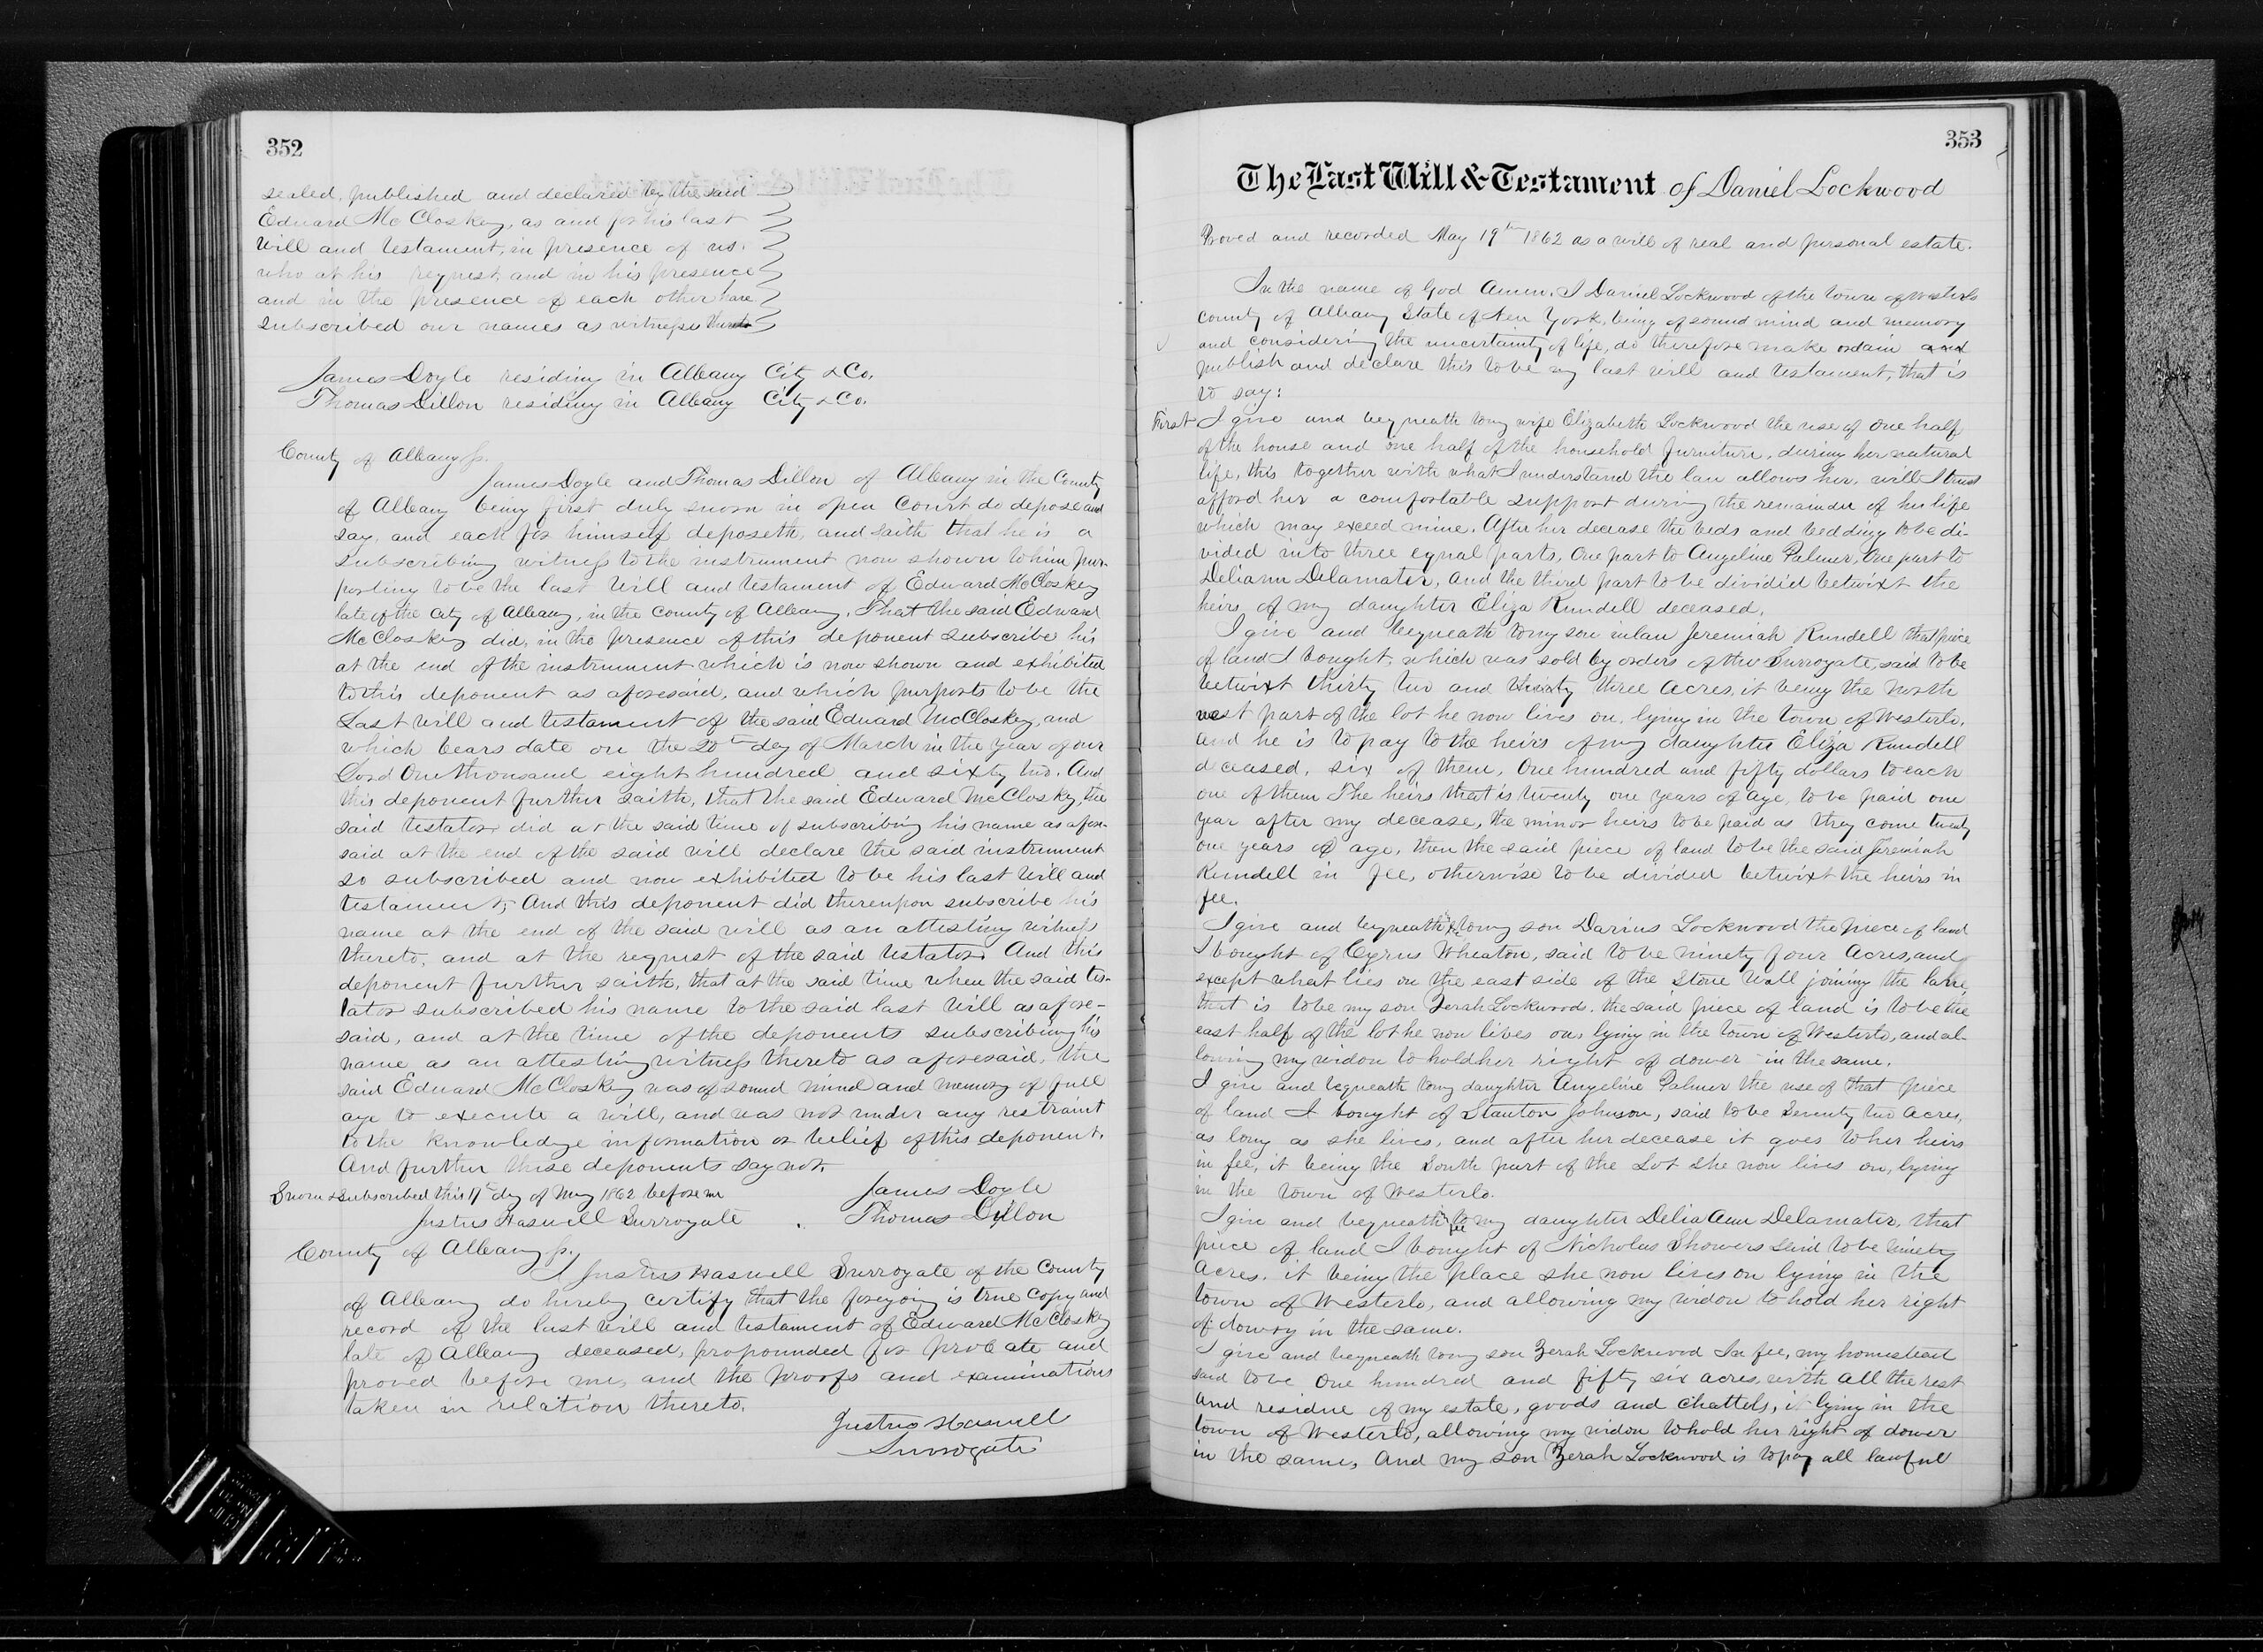 352
sealed, published and declared by the said
Edward McCloskey, as and for his last
Will and testament, in presence of us.
who at his request, and in his presence
and in the presence of each other have
subscribed our names as witnesses thereto
James Doyle residing in Albany City & Co.
Thomas Dillon residing in Albany City & Co.
County of Albany ss.
James Doyle and Thomas Dillon of Albany in the County
of Albany being first duly sworn in open Court do depose and
say, and each for himself deposeth, and saith that he is a
subscribing witness to the instrument now shown to him pur-
porting to be the last Will and testament of Edward McCloskey
late of the City of Albany, in the County of Albany. That the said Edward
McCloskey did, in the presence of this deponent subscribe his
at the end of the instrument which is now shown and exhibited
to this deponent as aforesaid, and which purports to be the
Last Will and testament of the said Edward McCloskey, and
which bears date on the 20th day of March in the year of our
Lord One thousand eight hundred and sixty two. And
this deponent further saith, that the said Edward McCloskey, the
said testator did at the said time of subscribing his name as afore-
said at the end of the said will declare the said instrument
so subscribed and now exhibited to be his last Will and
testament; And this deponent did thereupon subscribe his
name at the end of the said will as an attesting witness
thereto, and at the request of the said testator. And this
deponent further saith, that at the said time when the said tes-
tator subscribed his name to the said last Will as afore-
said, and at the time of the deponents subscribing his
name as an attesting witness thereto as aforesaid, the
said Edward McCloskey was of sound mind and memory of full
age to execute a will, and was not under any restraint
to the knowledge information or belief of this deponent.
And further these deponents say not.
Sworn & subscribed this 19th day of May 1862 before me James Doyle
Justus Haswell Surrogate. Thomas Dillon
County of Albany ss.
I Justus Haswell Surrogate of the County
of Albany do hereby certify that the foregoing is true copy and
record of the last Will and testament of Edward McCloskey
late of Albany deceased, propounded for probate and
proved before me, and the proofs and examinations
taken in relation thereto.
Justus Haswell
Surrogate
353
The Last Will & Testament of Daniel Lockwood
Proved and recorded May 19th 1862 as a will of real and personal estate.
In the name of God Amen. I Daniel Lockwood of the town of Westerlo
county of Albany State of New York, being of sound mind and memory
and considering the uncertainty of life, do therefore make ordain and
publish and declare this to be my last will and testament, that is
to say:
First I give and bequeath to my wife Elizabeth Lockwood the use of one half
of the house and one half of the household furniture, during her natural
life, this together with what I understand the law allows her, will I trust
afford her a comfortable support during the remainder of her life
which may exceed mine. After her decease the beds and bedding to be di-
vided into three equal parts, One part to Angeline Palmer, One part to
Deliann Delamater, And the third part to be divided betwixt the
heirs of my daughter Eliza Rundell deceased.
I give and bequeath to my son in law Jeremiah Rundell that piece
of land I bought, which was sold by orders of the Surrogate, said to be
betwixt thirty two and thirty three Acres, it being the North
west part of the lot he now lives on, lying in the town of Westerlo.
And he is to pay to the heirs of my daughter Eliza Rundell
deceased, six of them, One hundred and fifty dollars to each
one of them The heirs that is twenty one years of age, to be paid one
year after my decease, the minor heirs to be paid as they come twenty
one years of age, then the said piece of land to be the said Jeremiah
Rundell in fee, otherwise to be divided betwixt the heirs in
fee.
I give and bequeath in fee to my son Darius Lockwood the piece of land
I bought of Cyrus Wheaton, said to be ninety four Acres, and
except what lies on the east side of the Stone Wall joining the lane,
that is to be my son Zerah Lockwoods. the said piece of land is to be the
east half of the lot he now lives on, lying in the town of Westerlo, and al-
lowing my widow to hold her right of dower in the same.
I give and bequeath to my daughter Angeline Palmer the use of that piece
of land I bought of Stanton Johnson, said to be Seventy two acres,
as long as she lives, and after her decease it goes to her heirs
in fee, it being the South part of the Lot she now lives on, lying
in the town of Westerlo.
I give and bequeath in fee to my daughter Delia Ann Delamater, that
piece of land I bought of Nicholas Showers said to be ninety
Acres. it being the place she now lives on lying in the
town of Westerlo, and allowing my widow to hold her right
of dowry in the same.
I give and bequeath to my son Zerah Lockwood In fee, my homestead
said to be One hundred and fifty six acres, with all the rest
and residue of my estate, goods and chattels, it lying in the
town of Westerlo, allowing my widow to hold her right of dower
in the same, And my son Zerah Lockwood is to pay all lawful